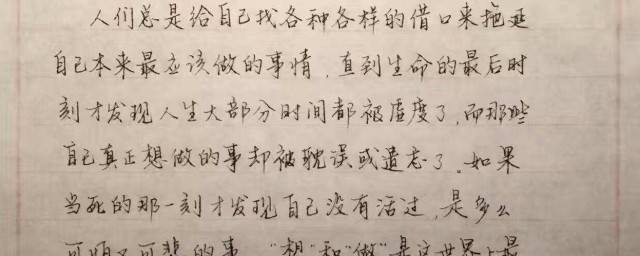 人们总是给自己找各种各样的借口来拖延
自己本来最应该做的事情,直到生命的最后时
刻才发现人生大部分时间都被虚度了,而那些
自己真正想做的事却被耽误或遗忘了。如果
当死的那一刻才发现自己没有活过,是多么
可 又可悲的事。"想"和"做"是这世界上最